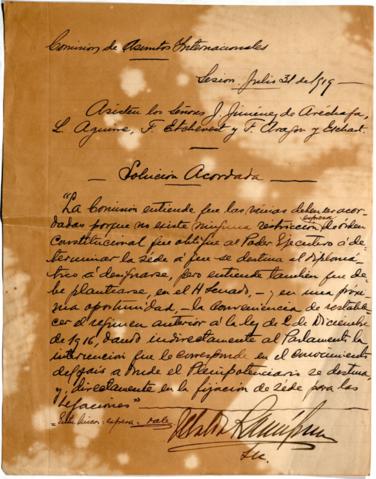 Comision de Asuntos Internacionales
Sesion Julio 31 de 1919 —
Asisten los Señores J. Jiménez de Aréchaga,
L. Aguirre, F. Etchevest y F. Aragón y Etchart.
— Solución Acordada —
"La Comisión entiende que las venias deben ser acor-
dadas porque no existe ninguna restricción expresa de orden
Constitucional que obligue al Poder Ejecutivo á de-
terminar la Sede á que se destina el diplomá-
tico á designarse, pero entiende también que de-
be plantearse, en el H. Senado, — y en una próxi-
ma oportunidad, — la conveniencia de restable-
cer el régimen anterior á la ley de 2 de Diciembre
de 1916, dando indirectamente al Parlamento la
intervención que le corresponde en el conocimiento
del país a donde el Plenipotenciario se destina,
y directamente en la fijación de sede para las
Legaciones"
Entre líneas: expresa: vale
Sec.